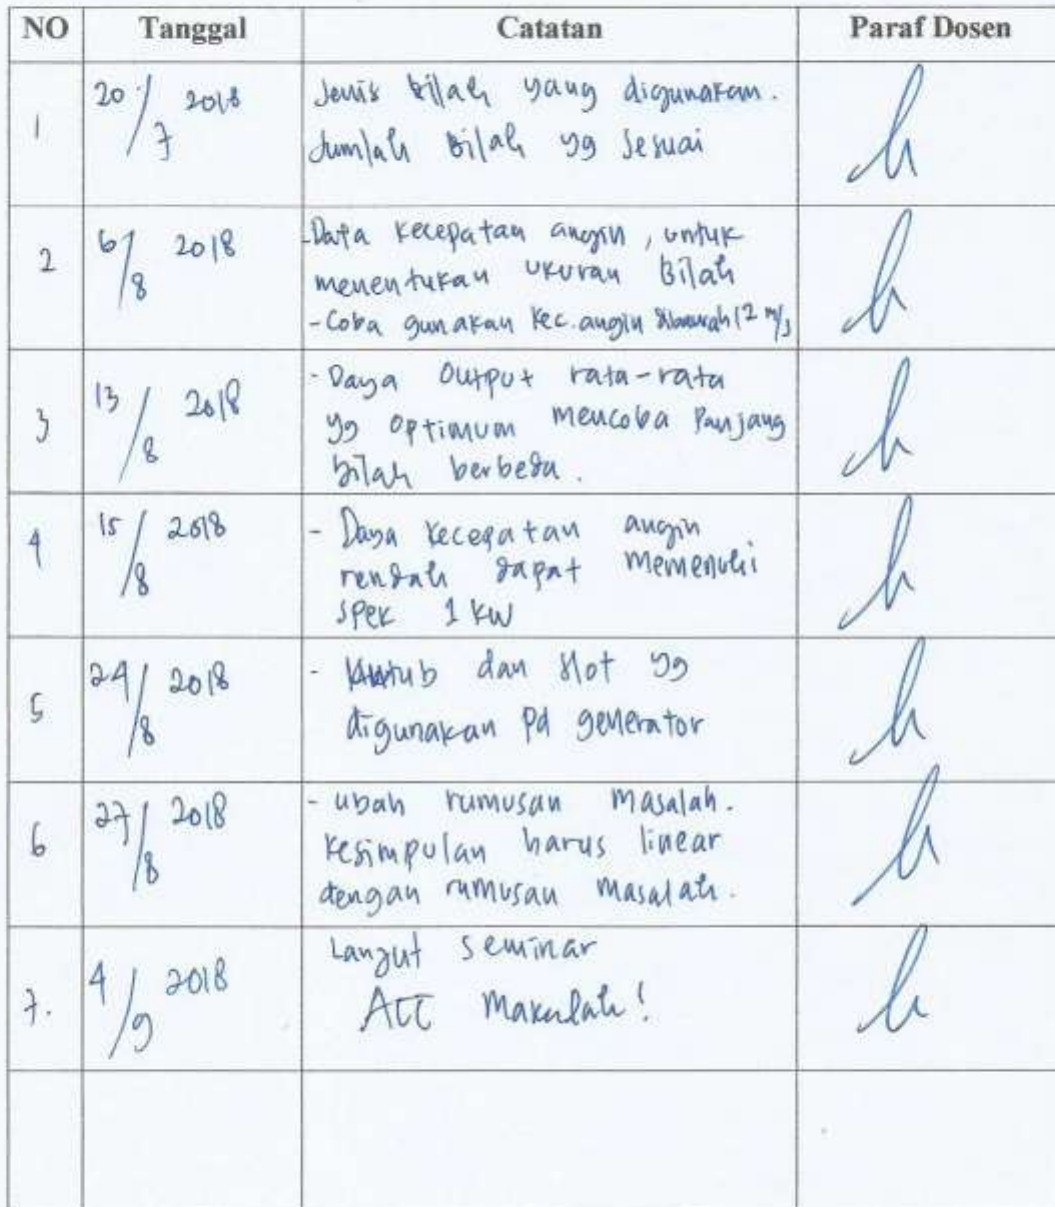 NO Tanggal Catatan Paraf Dosen
1 20/7 2018 Jenis bilah yang digunakan.
Jumlah Bilah yg Sesuai
2 6/8 2018 -Data kecepatan angin, untuk
menentukan ukuran Bilah
-Coba gunakan kec. angin dibawah 12 m/s
3 13/8 2018 - Daya Output rata-rata
yg optimum mencoba Panjang
bilah berbeda.
4 15/8 2018 - Daya kecepatan angin
rendah dapat memenuhi
spek 1 kW
5 24/8 2018 - Kutub dan Slot yg
digunakan pd generator
6 27/8 2018 - ubah rumusan masalah.
kesimpulan harus linear
dengan rumusan masalah.
7. 4/9 2018 Lanjut seminar
ACC Makalah!